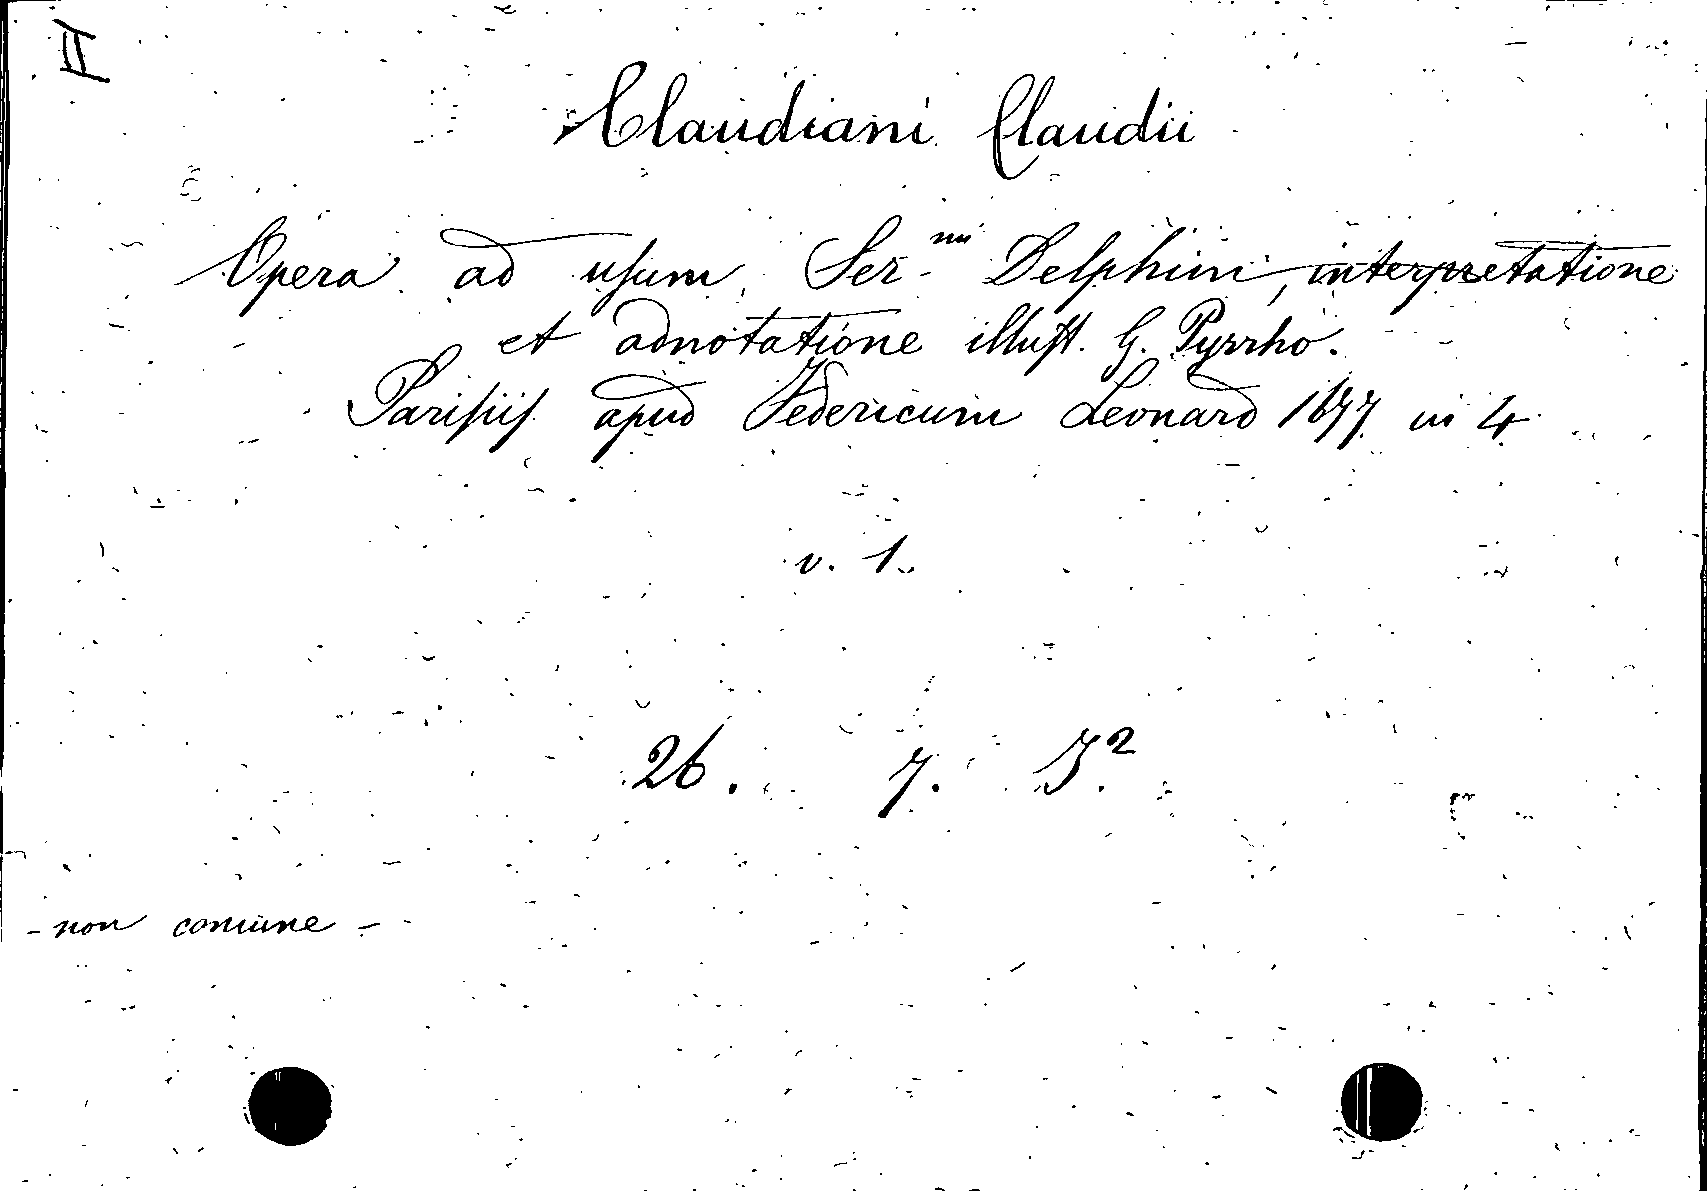 II
Claudiani Claudii
Opera ad usum Ser.mi Delphini, interpretatione
et adnotatione illust. G. Pyrrho.
Parisiis apud Federicum Leonard 1677 in 4
v. 1.
26. 7. J.2
- non comune -